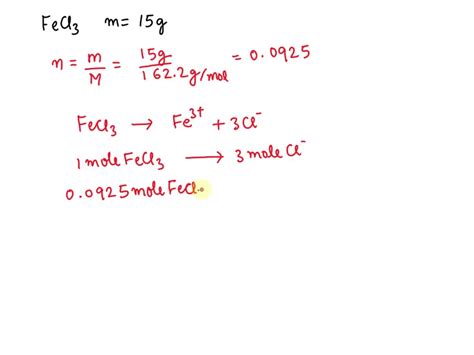 FeCl₃ m = 15g
n = m/M = 15g/162.2g/mol = 0.0925
FeCl₃ → Fe³⁺ + 3Cl⁻
1 mole FeCl₃ → 3 mole Cl⁻
0.0925 mole FeCl